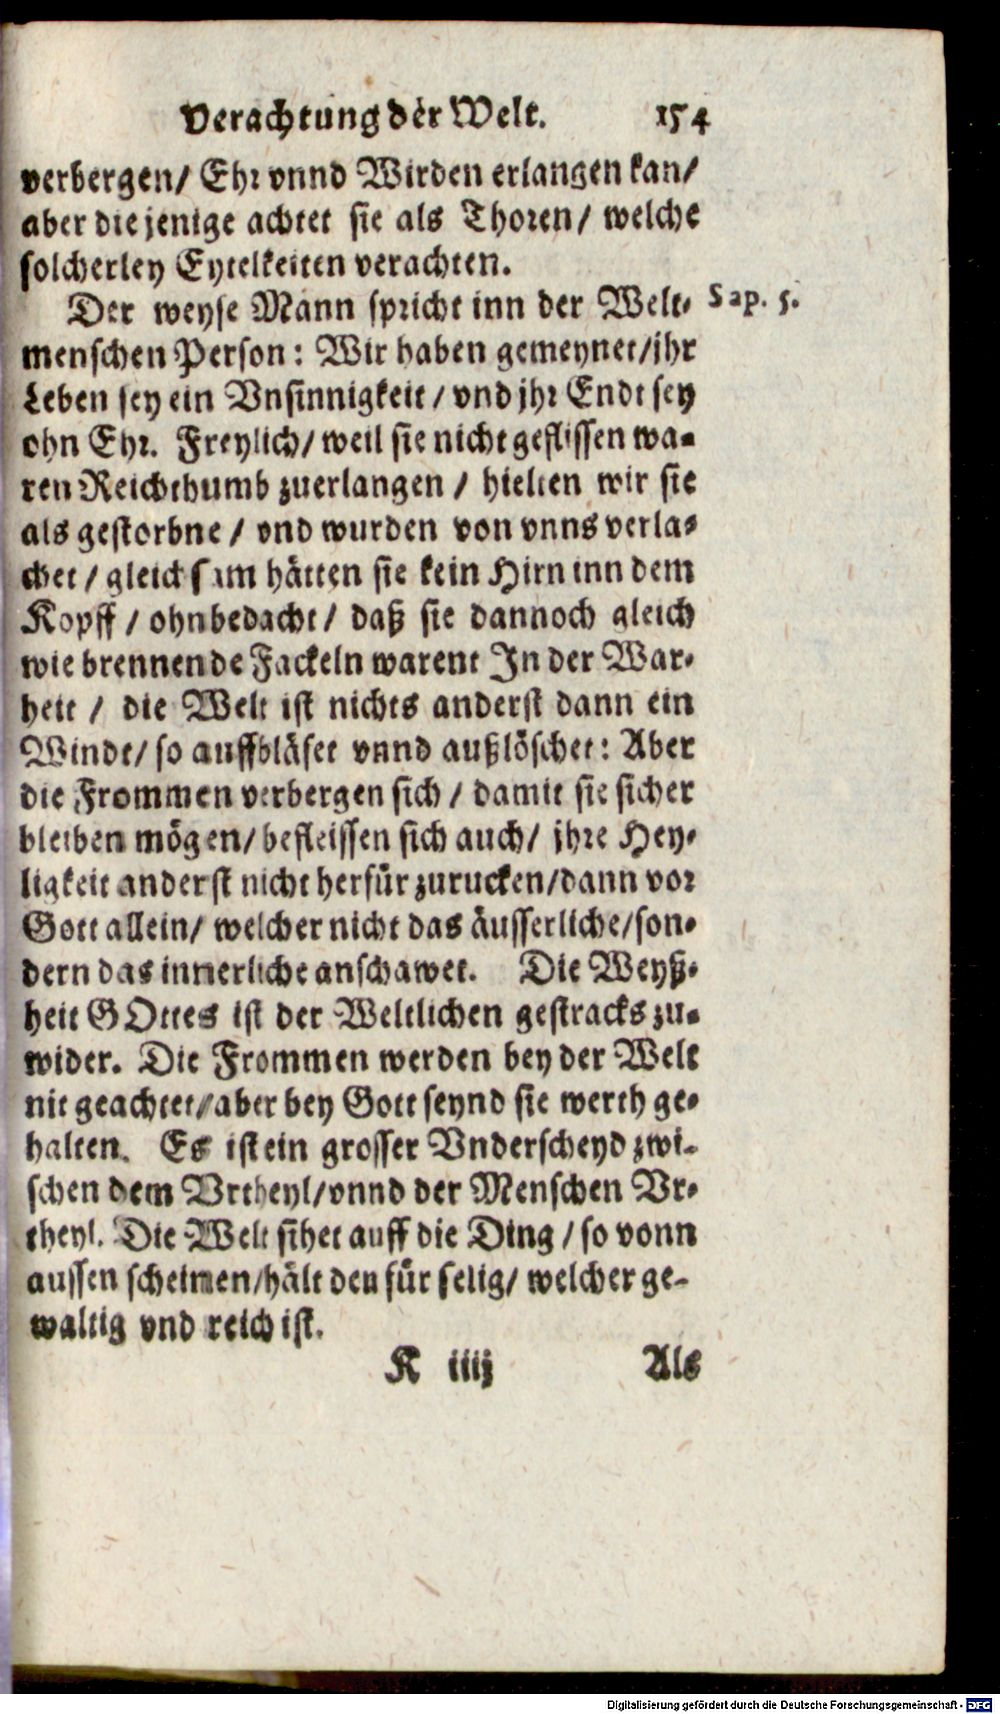 Verachtung der Welt. 154
verbergen/ Ehr vnnd Wirden erlangen kan/
aber die jenige achtet sie als Thoren/ welche
solcherley Eytelkeiten verachten.
Der weyse Mann spricht inn der Welt- Sap. 5.
menschen Person: Wir haben gemeynet/ jhr
Leben sey ein Vnsinnigkeit/ vnd jhr Endt sey
ohn Ehr. Freylich/ weil sie nicht geflissen wa-
ren Reichthumb zuerlangen/ hielten wir sie
als gestorbne/ vnd wurden von vnns verla-
chet/ gleichsam hätten sie kein Hirn inn dem
Kopff/ ohnbedacht/ daß sie dannoch gleich
wie brennende Fackeln warent In der War-
heit/ die Welt ist nichts anderst dann ein
Windt/ so auffbläset vnnd außlöschet: Aber
die Frommen verbergen sich/ damit sie sicher
bleiben mögen/ befleissen sich auch/ jhre Hey-
ligkeit anderst nicht herfür zurucken/ dann vor
Gott allein/ welcher nicht das äusserliche/ son-
dern das innerliche anschawet. Die Weyß-
heit GOttes ist der Weltlichen gestracks zu-
wider. Die Frommen werden bey der Welt
nit geachtet/ aber bey Gott seynd sie werth ge-
halten. Es ist ein grosser Vnderscheyd zwi-
schen dem Vrtheyl/ vnnd der Menschen Vr-
theyl. Die Welt sihet auff die Ding/ so vonn
aussen scheinen/ hält den für selig/ welcher ge-
waltig vnd reich ist.
K iiij Als
Digitalisierung gefördert durch die Deutsche Forschungsgemeinschaft - DFG